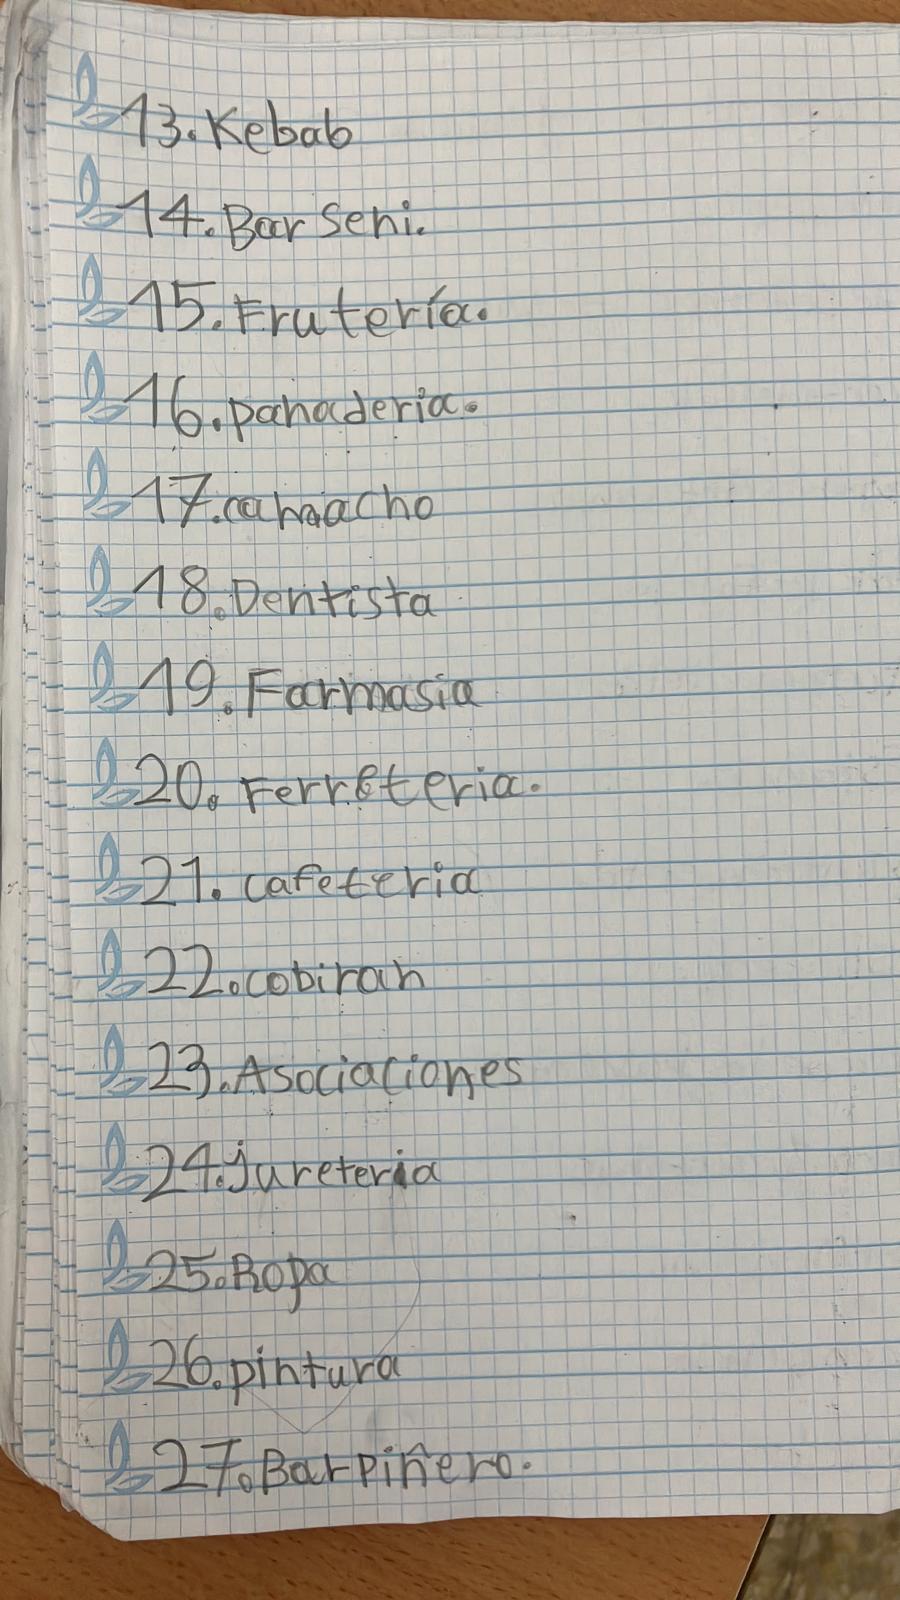 13. Kebab
14. Bar Seni.
15. Frutería.
16. panaderia.
17. camacho
18. Dentista
19. Farmasia
20. Ferreteria.
21. cafeteria
22. cobiran
23. Asociaciones
24. jureteria
25. Ropa
26. pintura
27. Bar piñero.